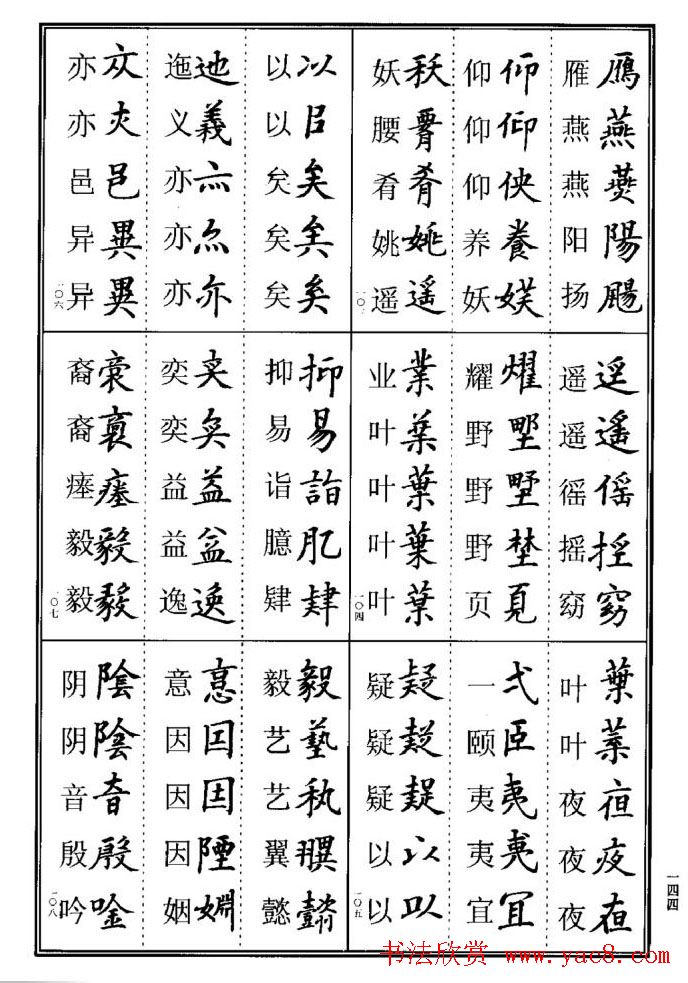 鴈燕燕陽颺
雁燕燕阳扬
仰仰
仰仰仰养妖
肴姚遥
妖腰肴姚遥
遥傜窈
遥遥徭摇窈
燿野
耀野野野页
業葉葉葉葉
业叶叶叶叶
葉夜
叶叶夜夜夜
弌臣夷夷冝
一颐夷夷宜
疑以以
疑疑疑以以
一〇五
以㠯矣矣矣
以以矣矣矣
迆義亦亦亦
迤义亦亦亦
亦邑異異
亦亦邑异异
一〇六
抑易詣肊肆
抑易诣臆肄
奕益益逸
奕奕益益逸
瘞毅毅
裔裔瘗毅毅
毅藝秇
毅艺艺翼懿
意因因陻婣
意因因因姻
陰陰音殷唫
阴阴音殷吟
一〇八
一四四
书法欣赏 www.yac8.com